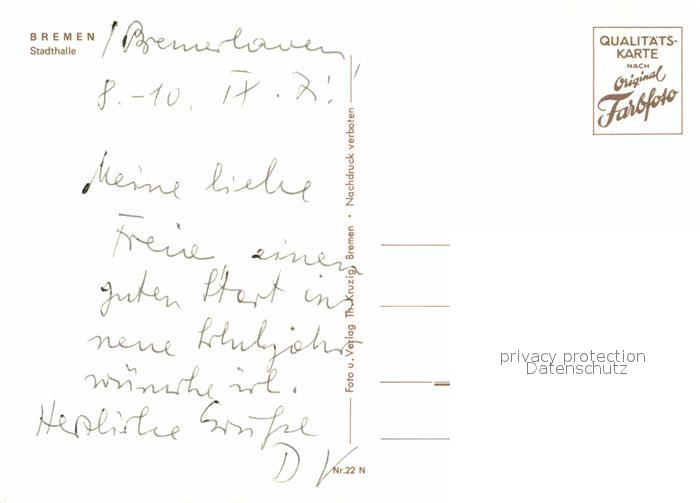 BREMEN / Bremerhaven
Stadthalle
8.-10. IX.
Meine liebe
einen
guten Start ins
neue Schuljahr
wünsche ich.
Herzliche Grüße
D V
Foto u. Verlag Th. Kruzig, Bremen • Nachdruck verboten
Nr.22 N
QUALITÄTS-
KARTE
NACH
Original
Farbfoto
privacy protection
Datenschutz